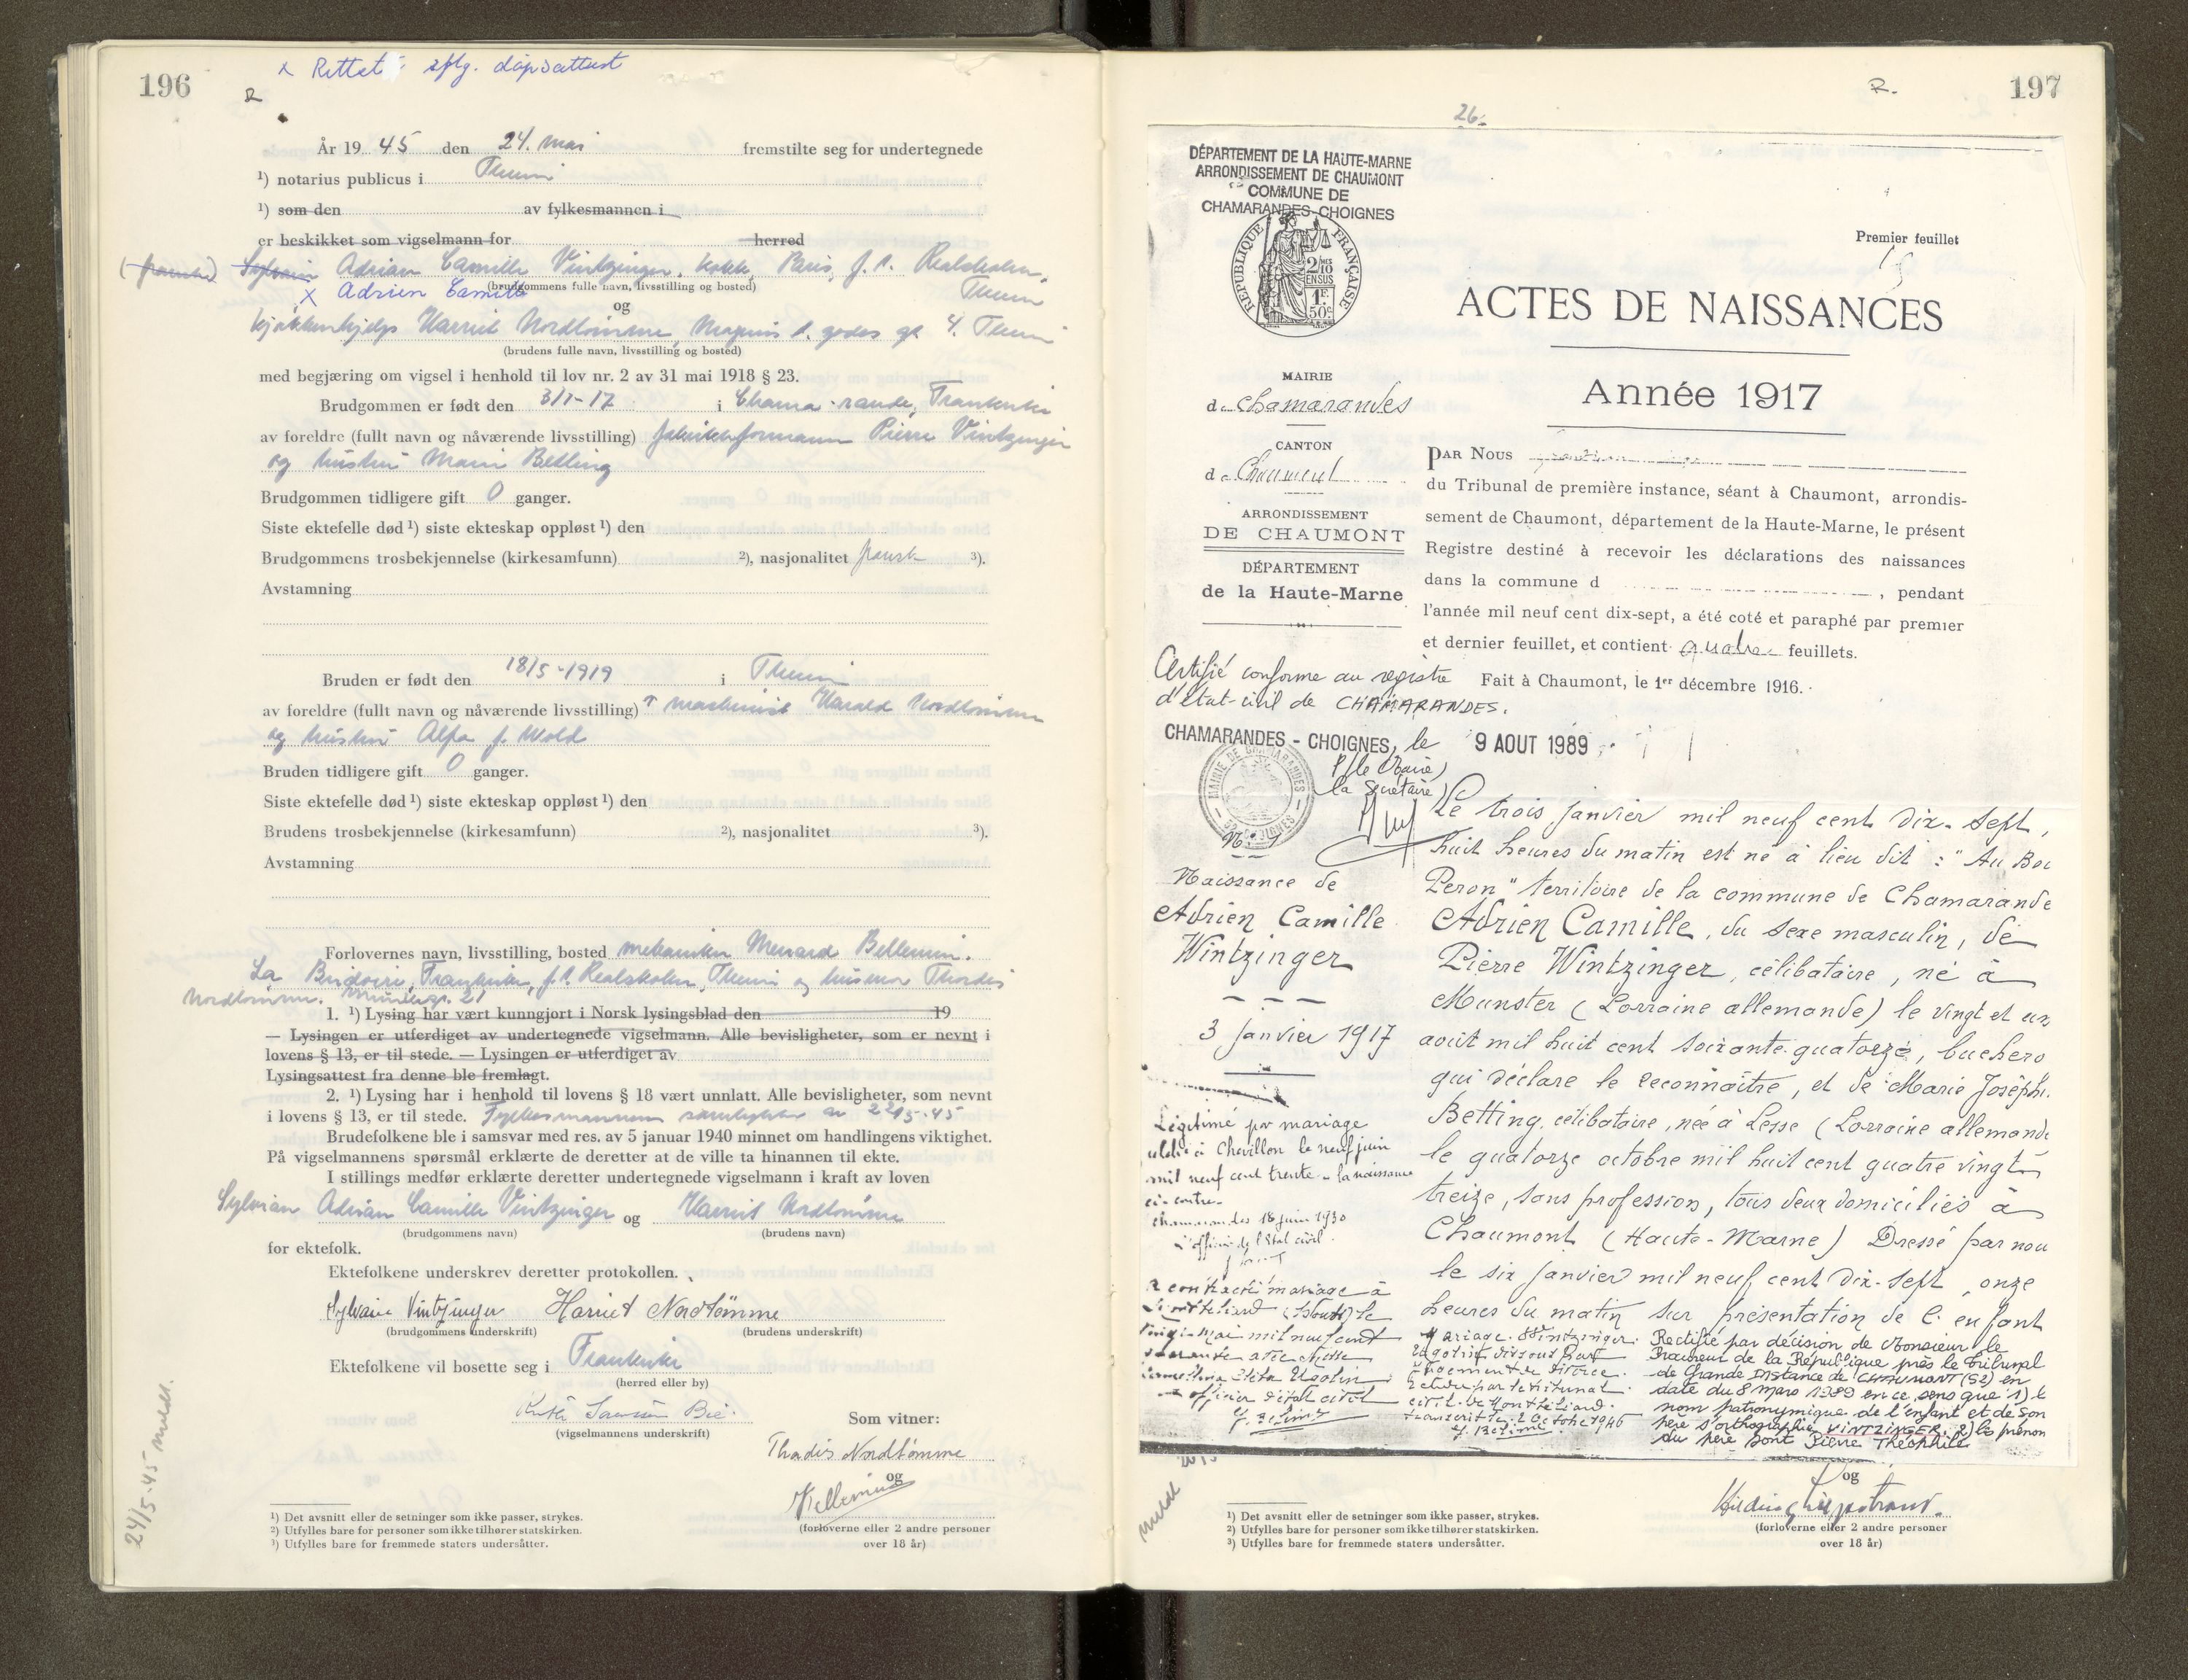 196
x Rettet sflg. dåpsattest
År 19 45 den 24. mai fremstilte seg for undertegnede
¹) notarius publicus i
¹) som den av fylkesmannen i
er beskikket som vigselmann for herred
Adrian Camille Vintzinger, kokk, Paris, f. t. Realskolen,
x Adrien Camille
(brudgommens fulle navn, livsstilling og bosted)
og
kjøkkenhjelp Harriet Nordtømme, Magnus d. godes gt 4.
(brudens fulle navn, livsstilling og bosted)
med begjæring om vigsel i henhold til lov nr. 2 av 31 mai 1918 § 23.
Brudgommen er født den 3/1-17 i Chamarande, Frankrike
av foreldre (fullt navn og nåværende livsstilling) fabrikkformann Pierre Vintzinger
og hustru Marie Betting
Brudgommen tidligere gift 0 ganger.
Siste ektefelle død ¹) siste ekteskap oppløst ¹) den
Brudgommens trosbekjennelse (kirkesamfunn) ²), nasjonalitet fransk ³).
Avstamning
Bruden er født den 18/5-1919 i
av foreldre (fullt navn og nåværende livsstilling) maskinist Harald Nordtømme
og hustru Alfa f. Wold
Bruden tidligere gift 0 ganger.
Siste ektefelle død ¹) siste ekteskap oppløst ¹) den
Brudens trosbekjennelse (kirkesamfunn) ²), nasjonalitet ³).
Avstamning
Forlovernes navn, livsstilling, bosted mekaniker
Frankrike, f. t. Realskolen, og husmor Thordis
Nordtømme.
1. ¹) Lysing har vært kunngjort i Norsk lysingsblad den 19
— Lysingen er utferdiget av undertegnede vigselmann. Alle bevisligheter, som er nevnt i
lovens § 13, er til stede. — Lysingen er utferdiget av
Lysingsattest fra denne ble fremlagt.
2. ¹) Lysing har i henhold til lovens § 18 vært unnlatt. Alle bevisligheter, som nevnt
i lovens § 13, er til stede. Fylkesmannens samtykke av 22/5-45
Brudefolkene ble i samsvar med res. av 5 januar 1940 minnet om handlingens viktighet.
På vigselmannens spørsmål erklærte de deretter at de ville ta hinannen til ekte.
I stillings medfør erklærte deretter undertegnede vigselmann i kraft av loven
Sylvian Adrian Camille Vintzinger og Harriet Nordtømme
(brudgommens navn) (brudens navn)
for ektefolk.
Ektefolkene underskrev deretter protokollen.
Sylvain Vintzinger Harriet Nordtømme
(brudgommens underskrift) (brudens underskrift)
Ektefolkene vil bosette seg i Frankrike
(herred eller by)
(vigselmannens underskrift)
Som vitner:
Thordis Nordtømme
og
(forloverne eller 2 andre personer
over 18 år)
24/5-45 meldt.
¹) Det avsnitt eller de setninger som ikke passer, strykes.
²) Utfylles bare for personer som ikke tilhører statskirken.
³) Utfylles bare for fremmede staters undersåtter.
197
26.
DÉPARTEMENT DE LA HAUTE-MARNE
ARRONDISSEMENT DE CHAUMONT
COMMUNE DE
CHAMARANDES-CHOIGNES
RÉPUBLIQUE FRANÇAISE
Premier feuillet
ACTES DE NAISSANCES
Année 1917
MAIRIE
de Chamarandes
CANTON
de Chaumont
ARRONDISSEMENT
DE CHAUMONT
DÉPARTEMENT
de la Haute-Marne
PAR NOUS
du Tribunal de première instance, séant à Chaumont, arrondis-
sement de Chaumont, département de la Haute-Marne, le présent
Registre destiné à recevoir les déclarations des naissances
dans la commune d , pendant
l'année mil neuf cent dix-sept, a été coté et paraphé par premier
et dernier feuillet, et contient quatre feuillets.
Fait à Chaumont, le 1er décembre 1916.
Certifié conforme au registre
d'état-civil de CHAMARANDES.
CHAMARANDES - CHOIGNES, le 9 AOUT 1989
P/le Maire)
la Secrétaire)
Naissance de
Adrien Camille
Wintzinger
3 janvier 1917
Le trois janvier mil neuf cent dix-sept,
huit heures du matin est né à lieu dit : "Au Boi
Peron" territoire de la commune de Chamarande
Adrien Camille, du sexe masculin, de
Pierre Wintzinger, célibataire, né à
Munster (Lorraine allemande) le vingt et un
août mil huit cent soixante-quatorze, bucheron
qui déclare le reconnaître, et de Marie Joséphi
Betting, célibataire, née à Lesse (Lorraine allemande
le quatorze octobre mil huit cent quatre vingt
treize, sans profession, tous deux domiciliés à
Chaumont (Haute-Marne) Dressé par nou
le six janvier mil neuf cent dix-sept, onze
heures du matin sur présentation de l'enfant
Légitimé par mariage
célébré à Chevillon le neuf juin
mil neuf cent trente - la naissance
ci-contre.
Chamarandes 18 juin 1930
L'officier de l'Etat civil.
A contracté mariage à
Montbéliard (Doubs) le
Mariage Wintzinger
Ugolin dissous par
jugement de divorce
rendu par le tribunal
civil de Montbéliard.
Rectifié par décision de Monsieur le
Procureur de la République près le Tribunal
de Grande Instance de CHAUMONT (52) en
date du 8 mars 1989 en ce sens que 1) le
nom patronymique de l'enfant et de son
père s'orthographie VINTZINGER. 2) les prénom
du père sont Pierre Théophile
og
(forloverne eller 2 andre personer
over 18 år)
¹) Det avsnitt eller de setninger som ikke passer, strykes.
²) Utfylles bare for personer som ikke tilhører statskirken.
³) Utfylles bare for fremmede staters undersåtter.